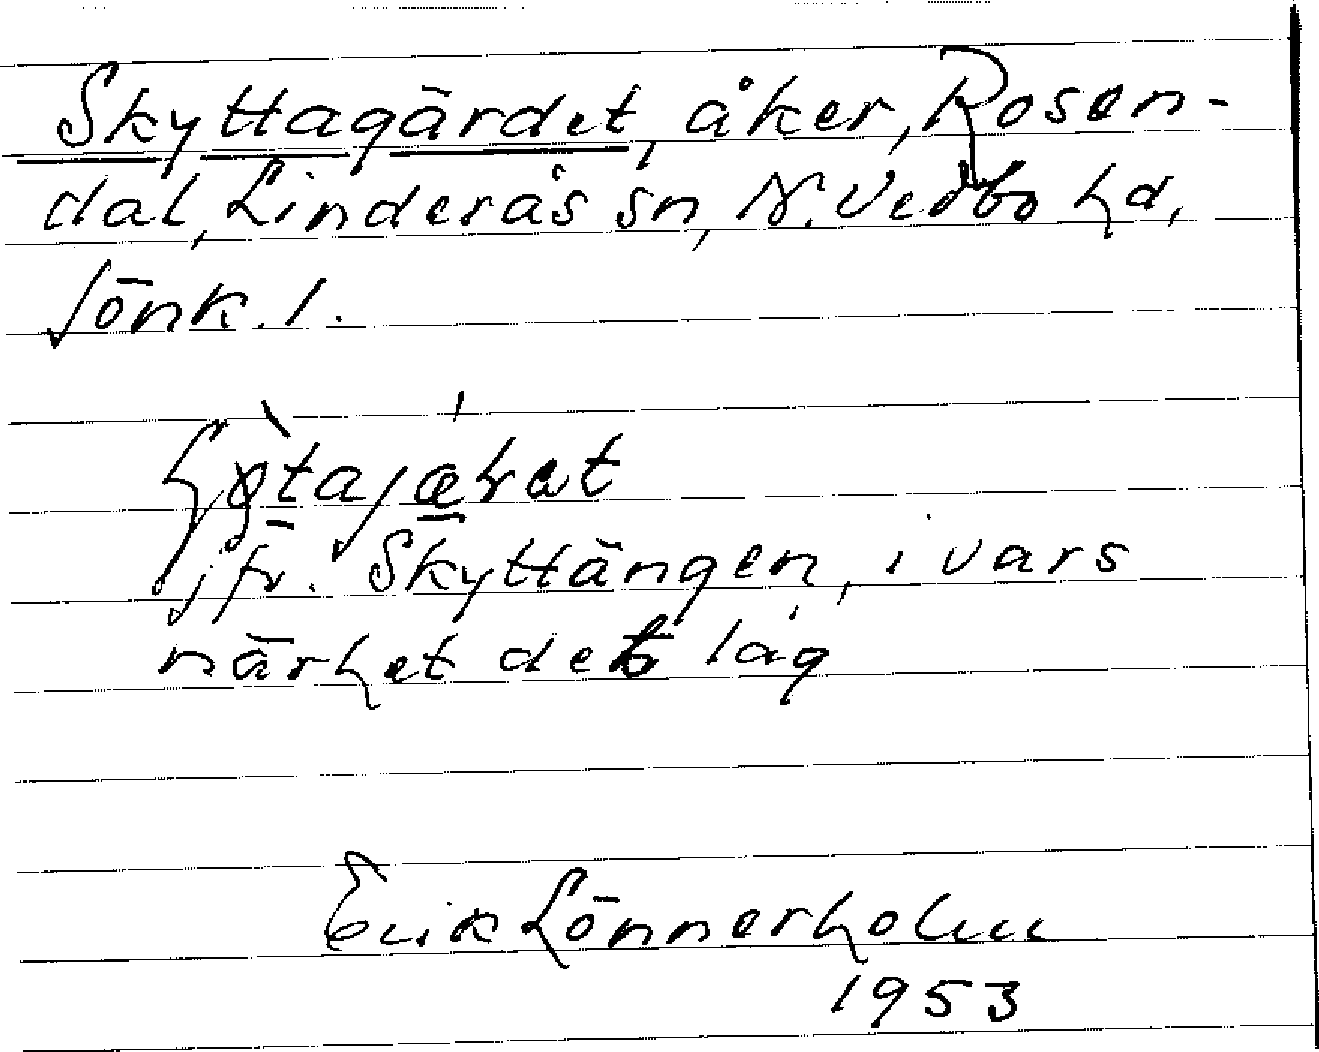 Skyttagärdet, åker, Rosen-
dal, Linderås sn, N. Vedbo hd,
Jönk. l.
jfr. Skyttängen, i vars
närhet det låg
Erik Lönnerholm
1953